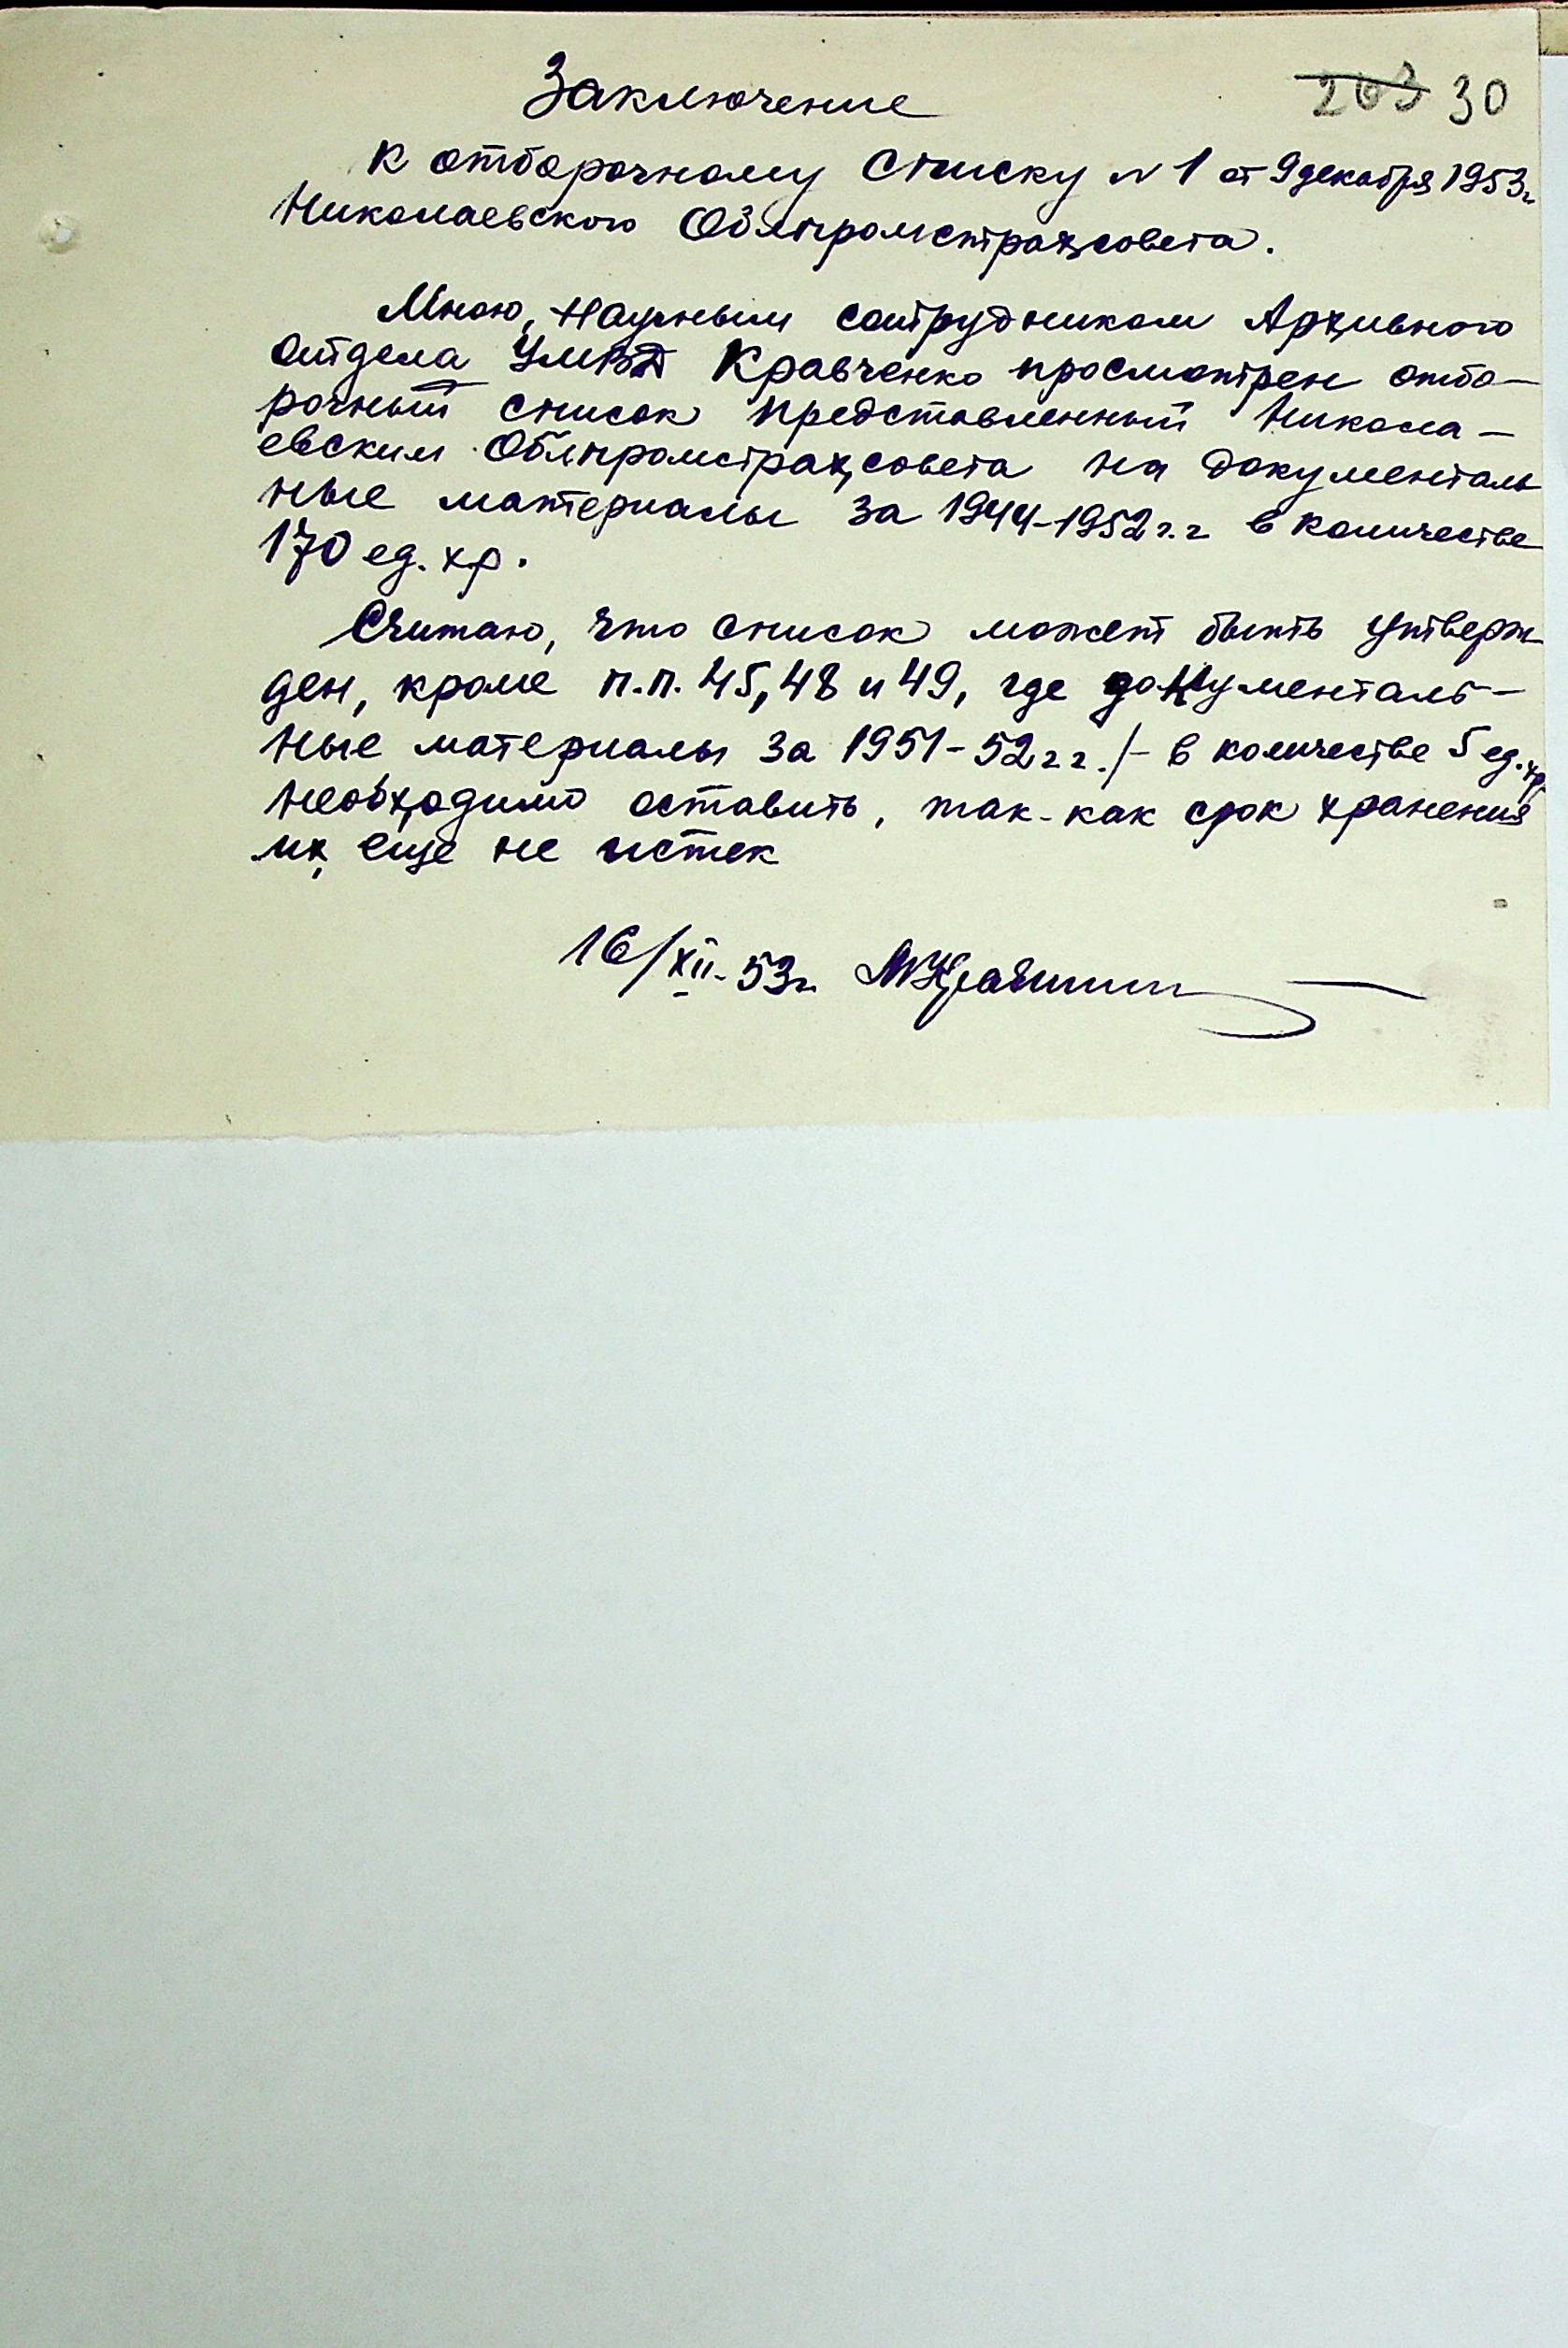 Заключение
203 30
к отборочному списку N 1 от 9 декабря 1953г.
Николаевского Облпромстрахсовета.
Мною, научным сотрудником Архивного
отдела УМВД Кравченко просмотрен отбо-
рочный список представленный Никола-
евским Облпромстрахсовета на документаль
ные материалы за 1944-1952г.г в количестве
170 ед. хр.
Считаю, что список может быть утверж
ден, кроме п.п. 45, 48 и 49, где документаль-
ные материалы за 1951-52г.г./- в количестве 5 ед. хр.
необходимо оставить, так-как срок хранения
их еще не истек
16/XII-53г.